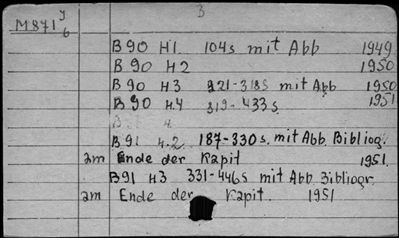 3
M871 J/6
B90 H1. 104s mit Abb 1949
B90 H2 1950
B90 H3 221-318s mit Abb 1950
B90 H.4 319-433s. 1951
B91 H.2. 187-330s. mit Abb. Bibliog.
am Ende der Kapit 1951.
B91 H3 331-446s mit Abb Bibliogr.
am Ende der Kapit. 1951